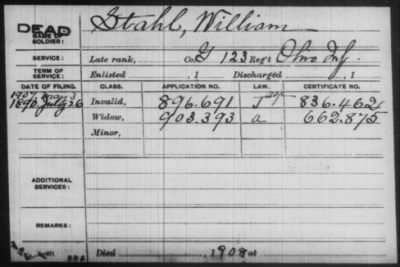 DEAD Stahl, William
NAME OF
SOLDIER:
SERVICE: Late rank, Co. G 123 Reg't Ohio Inf.
TERM OF
SERVICE: Enlisted , 1 Discharged , 1
DATE OF FILING. CLASS. APPLICATION NO. LAW. CERTIFICATE NO.
1890 July 26 Invalid, 896.691 J 836.462
Widow, 903.393 a 662.875
Minor,
ADDITIONAL
SERVICES:
REMARKS:
Died 1908 at